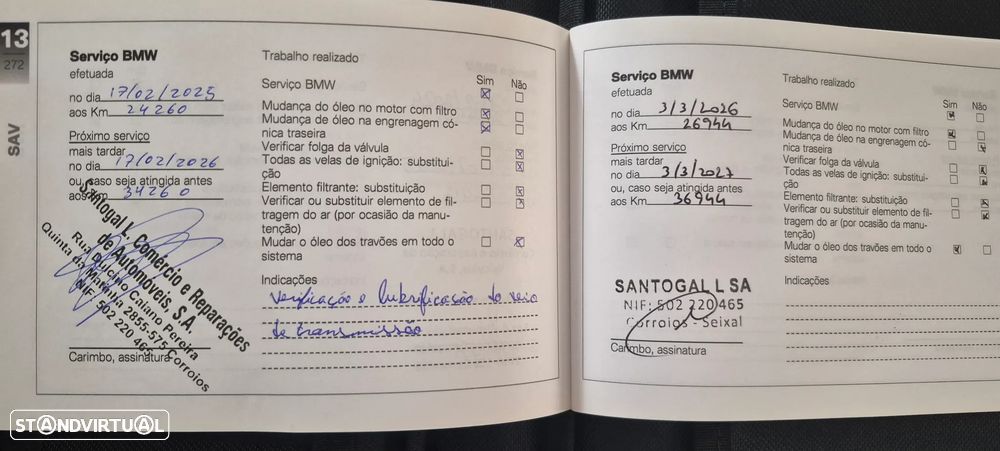 13
272
SAV
Serviço BMW
efetuada
no dia 17/02/2025
aos Km 24260
Próximo serviço
mais tardar
no dia 17/02/2026
ou, caso seja atingida antes
aos Km 34260
Santogal L Comércio e Reparações
de Automoveis, S.A.
Rua Pereira
Quinta da Marinha 2855-575 Corroios
NIF: 502 220 465
Carimbo, assinatura
Trabalho realizado
Sim Não
Serviço BMW
Mudança do óleo no motor com filtro
Mudança de óleo na engrenagem có-
nica traseira
Verificar folga da válvula
Todas as velas de ignição: substitui-
ção
Elemento filtrante: substituição
Verificar ou substituir elemento de fil-
tragem do ar (por ocasião da manu-
tenção)
Mudar o óleo dos travões em todo o
sistema
Indicações
Verificação e lubrificação do veio
de transmissão
Serviço BMW
efetuada
no dia 3/3/2026
aos Km 26944
Próximo serviço
mais tardar
no dia 3/3/2027
ou, caso seja atingida antes
aos Km 36944
SANTOGAL L SA
NIF: 502 220 465
Corroios - Seixal
Carimbo, assinatura
Trabalho realizado
Sim Não
Serviço BMW
Mudança do óleo no motor com filtro
Mudança de óleo na engrenagem có-
nica traseira
Verificar folga da válvula
Todas as velas de ignição: substitui-
ção
Elemento filtrante: substituição
Verificar ou substituir elemento de fil-
tragem do ar (por ocasião da manu-
tenção)
Mudar o óleo dos travões em todo o
sistema
Indicações
STANDVIRTUAL